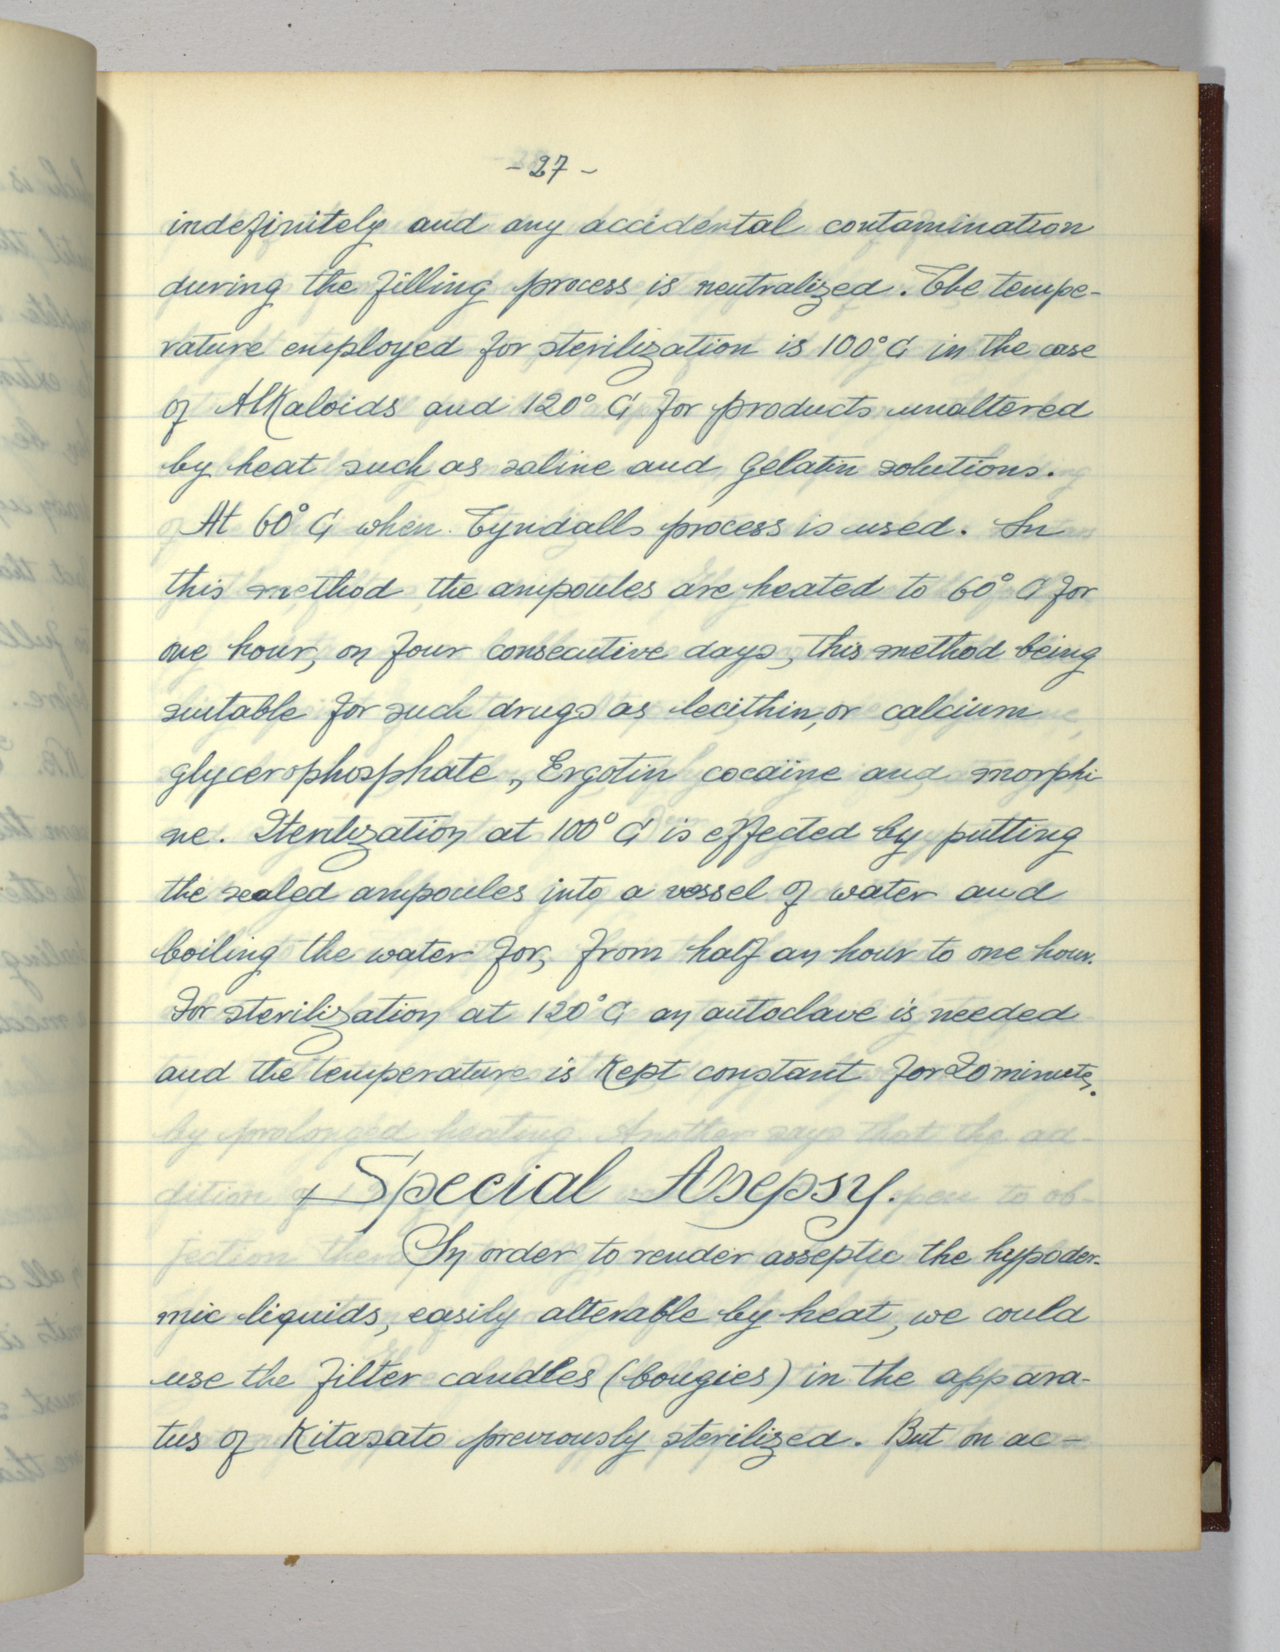 - 27 -
indefinitely and any accidental contamination
during the filling process is neutralized. The tempe-
rature employed for sterilization is 100° C in the case
of Alkaloids and 120° C for products unaltered
by heat such as saline and gelatin solutions.
At 60° C when Tyndalls process is used. In
this method the ampoules are heated to 60° C for
one hour, on four consecutive days, this method being
suitable for such drugs as lecithin, or calcium
glycerophosphate, Ergotin cocaïne and morphi
ne. Sterilization at 100° C is effected by putting
the sealed ampoules into a vessel of water and
boiling the water for, from half an hour to one hour.
For sterilization at 120° C an autoclave is needed
and the temperature is Kept constant for 20 minutes.
Special Asepsy.
In order to render asseptic the hypoder-
mic liquids, easily alterable by heat, we could
use the filter candles (bougies) in the appara-
tus of Kitasato previously sterilized. But on ac-